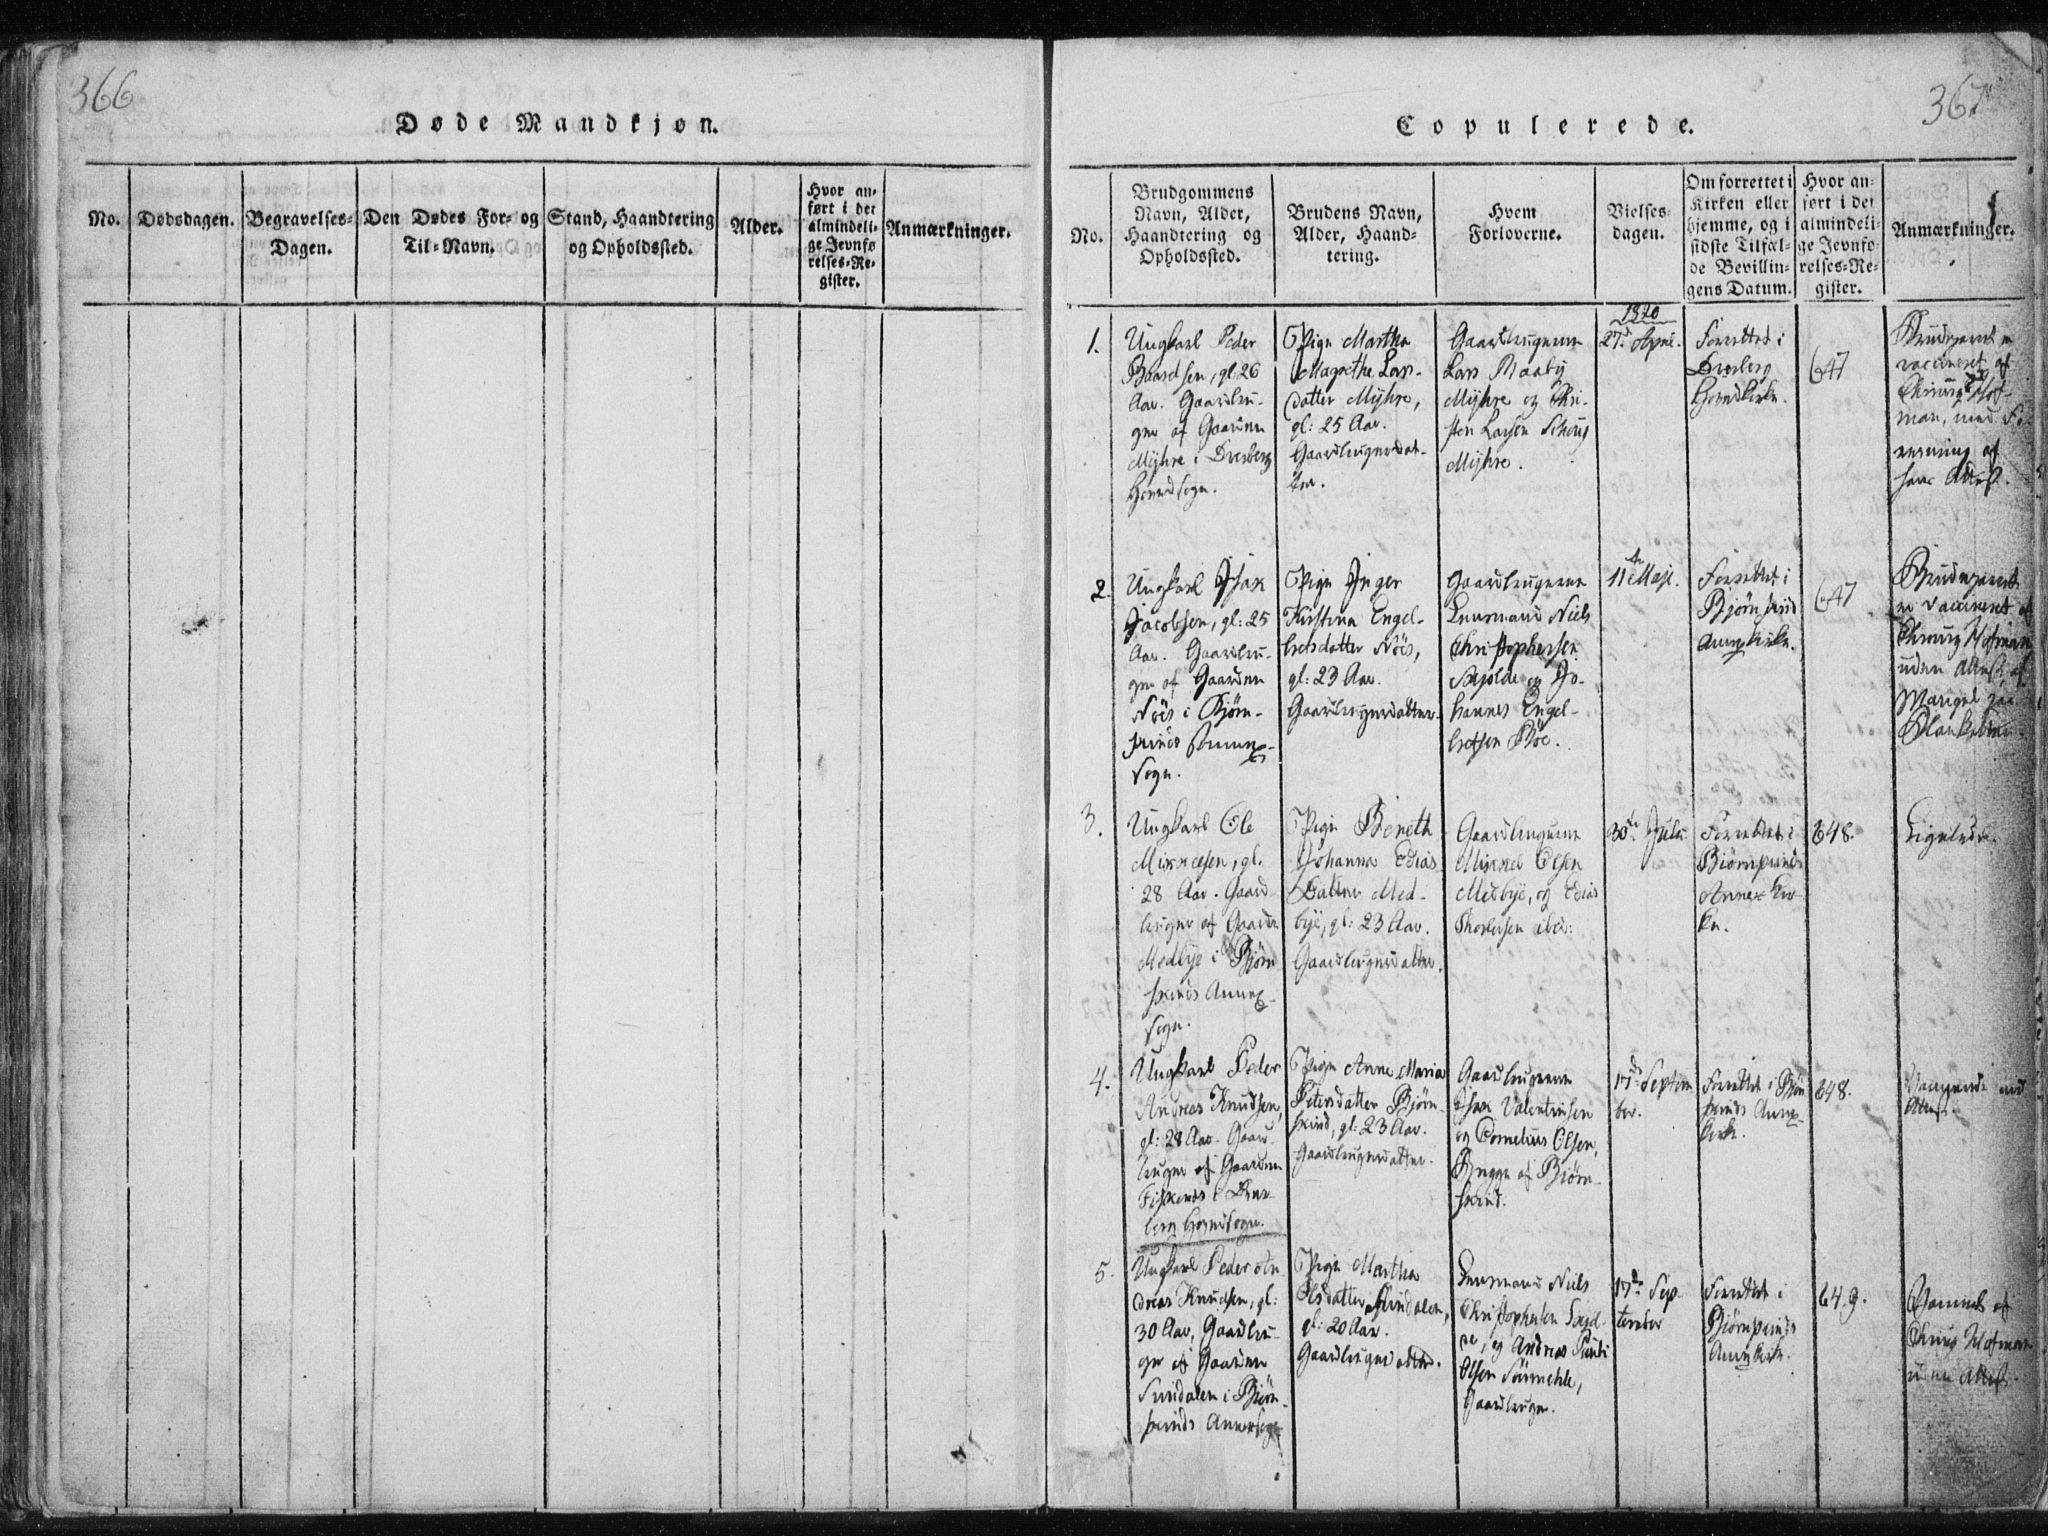 366
Døde Mandkjøn.
No.
Dødsdagen.
Begravelses-
Dagen.
Den Dødes For- og
Til-Navn.
Stand, Haandtering
og Opholdssted.
Alder.
Hvor an-
ført i det
almindeli-
ge Jevnfø
relses-Re-
gister.
Anmærkninger.
367
Copulerede.
No.
Brudgommens
Navn, Alder,
Haandtering og
Opholdssted.
Brudens Navn,
Alder, Haand-
tering.
Hvem
Forloverne.
Vielses-
dagen.
Om forrettet i
Kirken eller
hjemme, og i
sidste Tilfæl-
de Bevillin-
gens Datum.
Hvor an-
ført i det
almindeli-
ge Jevnfø-
relses-Re-
gister.
Anmærkninger.
1.
Ungkarl Peder
Baardsen, gl. 26
Aar. Gaardbru-
ger af Gaarden
Myhre i Dverberg
Hovedsogn.
Pige Martha
Magrethe Lars-
datter Myhre,
gl: 25 Aar.
Gaardbrugerdat-
ter.
Gaardbrugerne
Lars
Myhre og Chri-
sten Larsen
Myhre.
1820
27de April.
Forrettet i
Dverberg
Hovedkirke.
647
Brudeparret er
vaccineret af
Chirurg Hof-
man, med
af
hans Attest.
2.
Ungkarl Isak
Jacobsen, gl: 25
Aar. Gaardbru-
ger af Gaarden
Nöis i Bjørn-
skinds Annex-
Sogn.
Pige Inger
Kirstina Engel-
bretsdatter Nöis,
gl: 23 Aar.
Gaardbrugerdatter.
Gaardbrugerne
Lensmand Niels
Christophersen
og Jo-
hannes Engel-
bretsen Böe.
11te Maji.
Forrettet i
Bjørnskind
Annexkirke.
647
Brudeparret
er vaccineret af
Chirurg Hofman
uden Attest, af
Mangel paa
Blanketter.
3.
Ungkarl Ole
Mikkelsen, gl.
28 Aar. Gaard-
bruger af Gaarden
Medbye i Bjørn
skinds Annex-
sogn.
Pige Bereth
Johanna Edias
Datter Med-
bye, gl: 23 Aar.
Gaardbrugerdatter.
Gaardbrugerne
Mikkel Olsen
Medbye, og Edias
ibid:
30te Julii
Forrettet i
Bjørnskinds
Annex Kir-
ke.
648.
Ligeledes.
4.
Ungkarl Peder
Andreas Knudsen,
gl: 28 Aar. Gaard-
bruger af Gaarden
Fiskenes i Dver-
berg Hovedsogn.
Pige Anne Maria
Petersdatter Bjørn-
skind, gl: 23 Aar.
Gaardbrugerdatter.
Gaardbrugerne
Isak Valentinsen
og Cornelius Olsen,
Begge af Bjørn-
skind.
17de Septem
ber.
Forrettet i Bjørn
skinds Annex-
kirke.
648.
Attest.
5.
Ungkarl Peder An
dreas Knudsen, gl:
30 Aar, Gaardbru-
ger af Gaarden
i Bjørn-
skinds Annexsogn
Pige Martha
gl: 20 Aar.
Gaardbrugerdatter.
Lensmand Niels
Christophersen
og Andreas
Olsen
Gaardbruger.
17de Sep-
tember
Forrettet i
Bjørnskinds
Annexkirke.
649.
af
Chirurg Hofman
uden Attest.